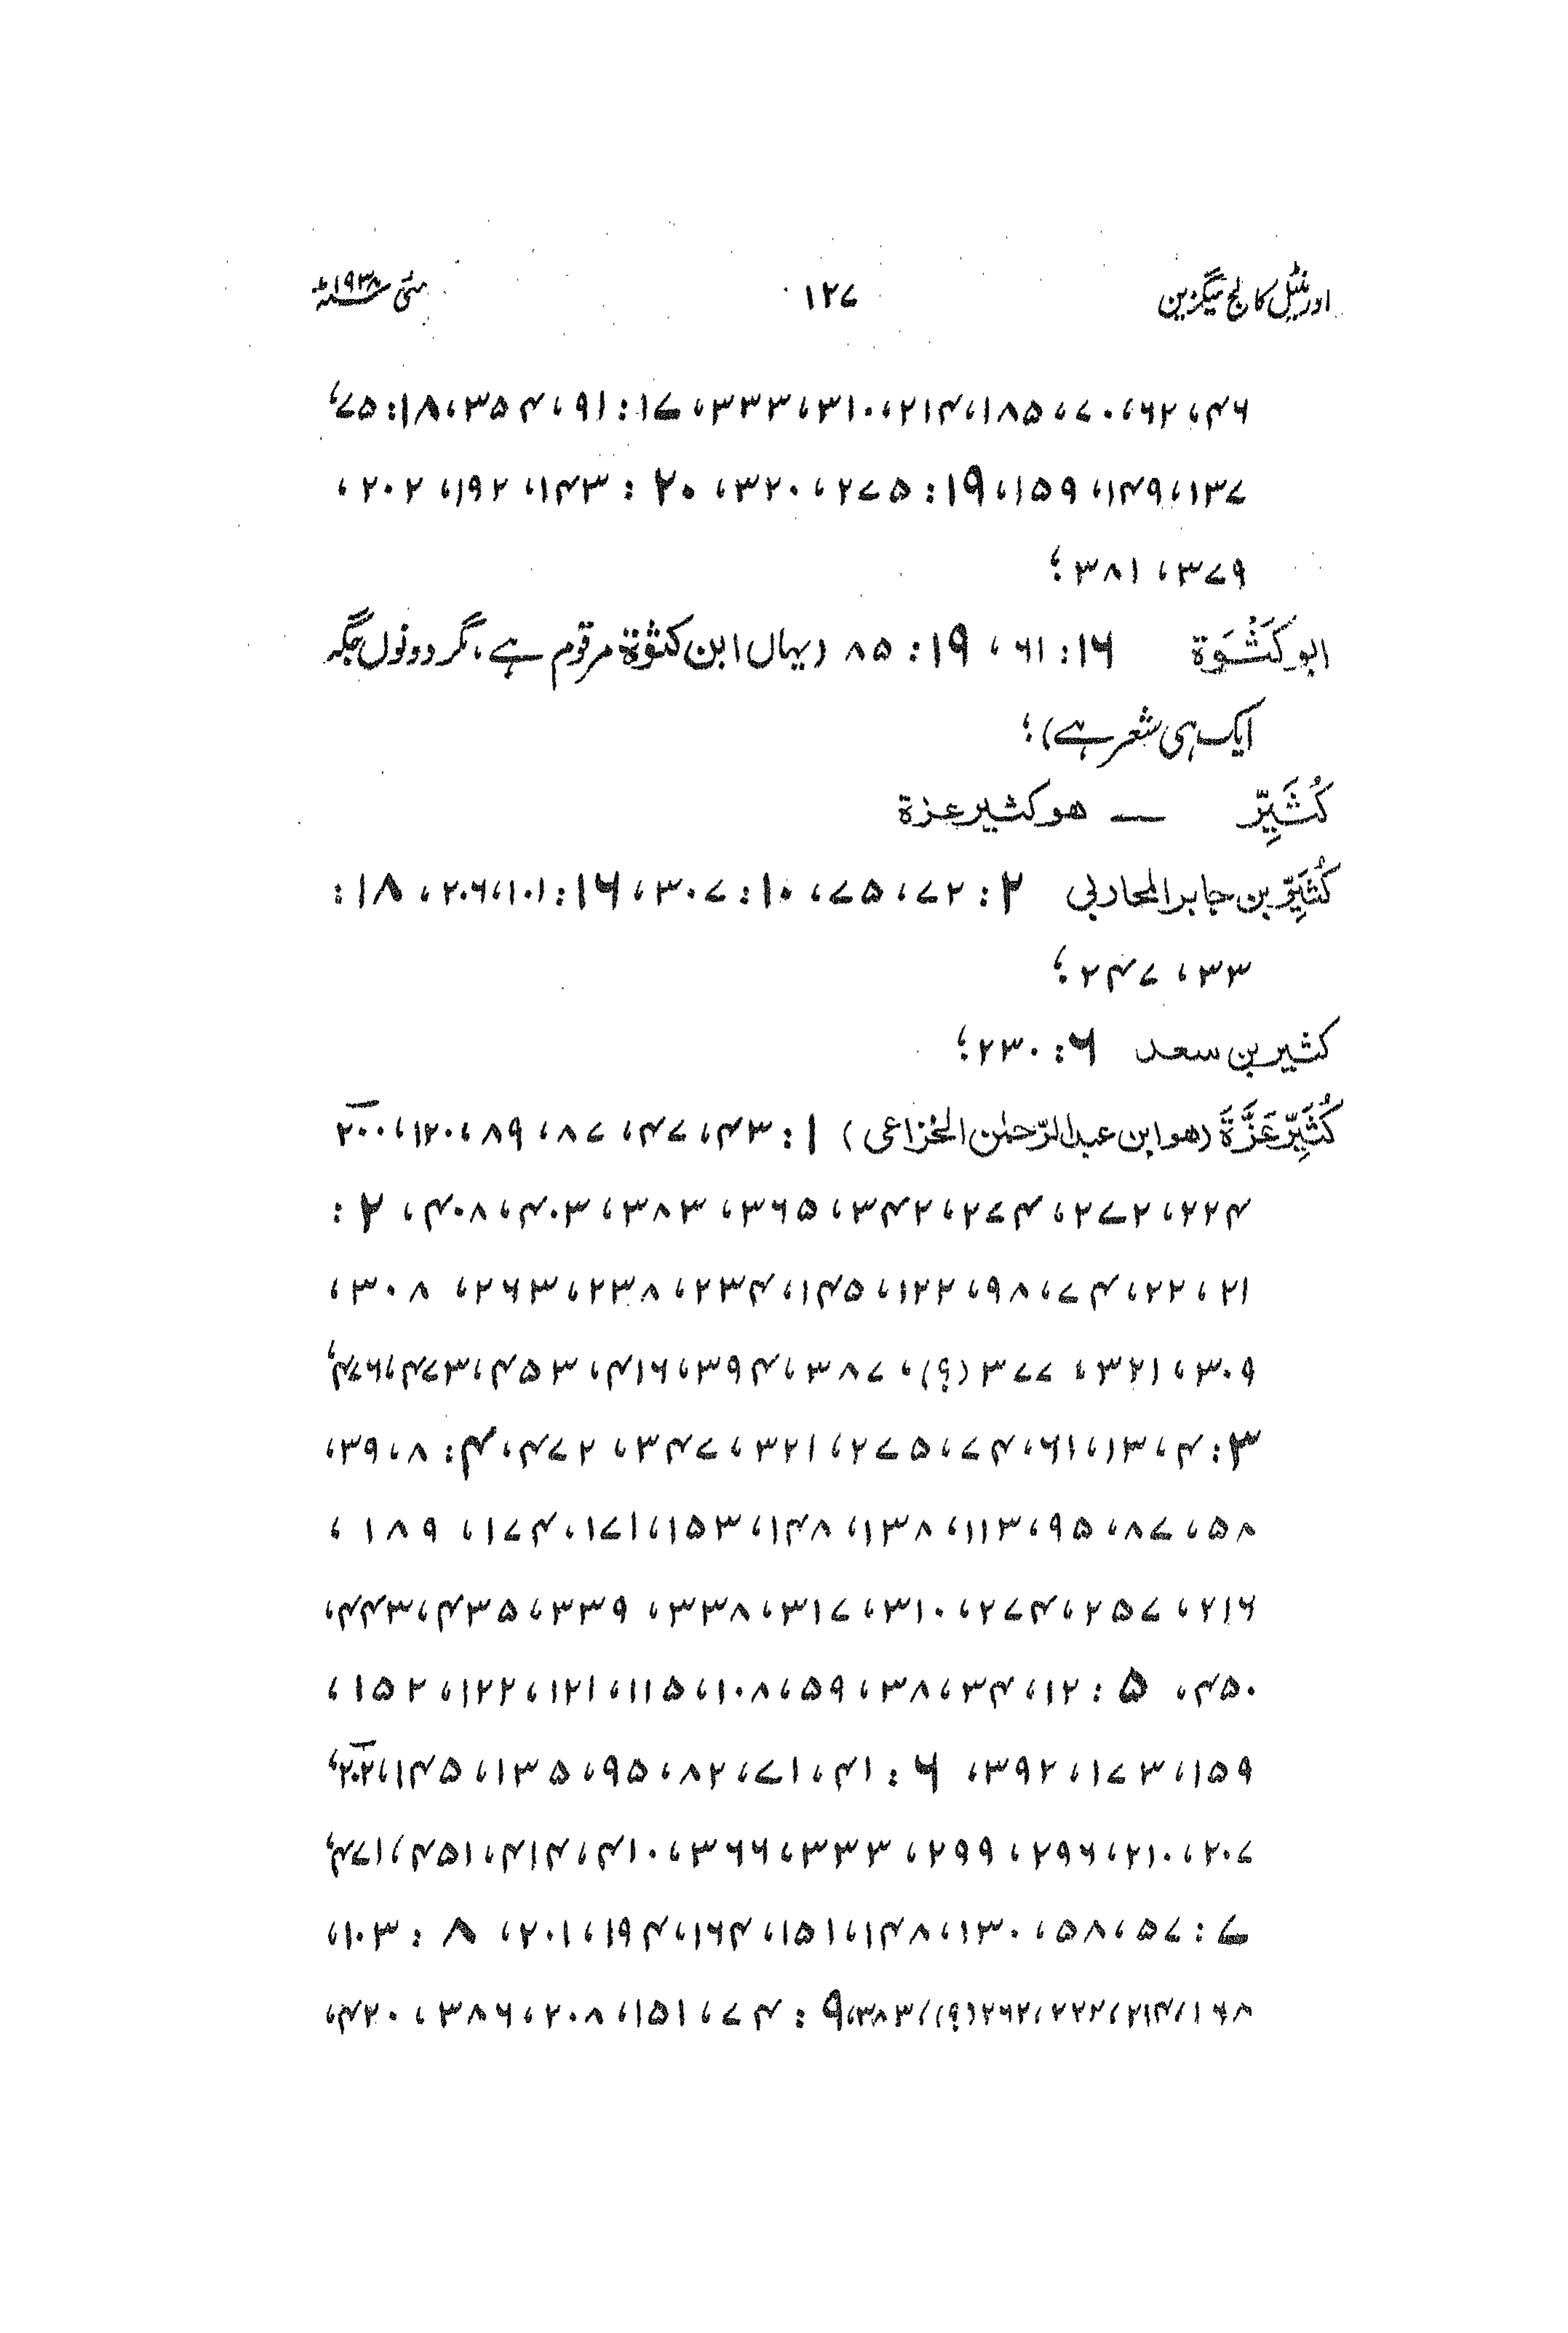 اورینٹل کالج میگزین ۱۲۷ مئی ۱۹۳۸ء
۴۶، ۶۲، ۷۰، ۱۸۵، ۲۱۴، ۳۱۰، ۳۳۳، ۱۷: ۹۱، ۳۵۴، ۱۸: ۷۵،
۱۳۷، ۱۴۹، ۱۵۹، ۱۹: ۲۷۵، ۳۲۰، ۲۰: ۱۴۳، ۱۹۲، ۲۰۲،
۳۷۹، ۳۸۱؛
ابو کَثْوَة ۱۶: ۶۱، ۱۹: ۸۵ (یہاں ابن کثوة مرقوم ہے، مگر دونوں جگہ
ایک ہی شعر ہے)؛
کُثَیِّر — هو کثیر عزة
کُثَیِّر بن جابر المحاربی ۲: ۷۲، ۷۵، ۱۰: ۳۰۷، ۱۶: ۱۰۱، ۲۰۶، ۱۸:
۳۳، ۲۴۷؛
کثیر بن سعد ۶: ۲۳۰؛
کُثَیِّر عَزَّةَ (هو ابن عبد الرّحمٰن الخُزاعی) ۱: ۴۳، ۴۷، ۸۷، ۸۹، ۱۲۰، ۲۰۰
۲۲۴، ۲۷۲، ۲۷۴، ۳۴۲، ۳۶۵، ۳۸۳، ۴۰۳، ۴۰۸، ۲:
۲۱، ۲۲، ۷۴، ۹۸، ۱۲۲، ۱۴۵، ۲۳۴، ۲۳۸، ۲۶۳، ۳۰۸،
۳۰۹، ۳۲۱، ۳۷۷ (؟)، ۳۸۷، ۳۹۴، ۴۱۶، ۴۵۳، ۴۷۳، ۴۷۶،
۳: ۴، ۱۳، ۶۱، ۷۴، ۲۷۵، ۳۲۱، ۳۴۷، ۴۷۲، ۴: ۸، ۳۹،
۵۸، ۸۷، ۹۵، ۱۱۳، ۱۳۸، ۱۴۸، ۱۵۳، ۱۷۱، ۱۷۴، ۱۸۹،
۲۱۶، ۲۵۷، ۲۷۴، ۳۱۰، ۳۱۷، ۳۳۸، ۳۳۹، ۴۳۵، ۴۴۳،
۴۵۰، ۵: ۱۲، ۳۴، ۳۸، ۵۹، ۱۰۸، ۱۱۵، ۱۲۱، ۱۲۲، ۱۵۲،
۱۵۹، ۱۷۳، ۳۹۲، ۶: ۴۱، ۷۱، ۸۲، ۹۵، ۱۳۵، ۱۴۵، ۲۰۲،
۲۰۷، ۲۱۰، ۲۹۶، ۲۹۹، ۳۳۳، ۳۶۶، ۴۱۰، ۴۱۴، ۴۵۱، ۴۷۱،
۷: ۵۷، ۵۸، ۱۳۰، ۱۴۸، ۱۵۱، ۱۶۴، ۱۹۴، ۲۰۱، ۸: ۱۰۳،
۱۶۸، ۲۱۴، ۲۲۲، ۲۶۲ (؟)، ۳۸۳، ۹: ۷۴، ۱۵۱، ۲۰۸، ۳۸۶، ۴۲۰،